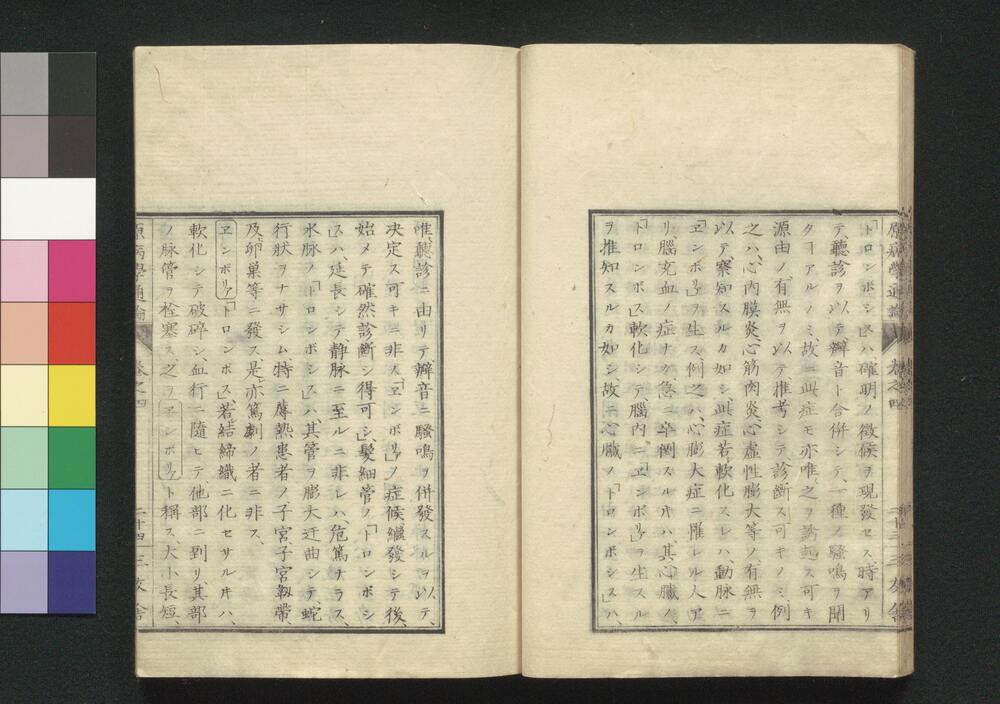 「トロンボシス」ハ、確明ノ徴候ヲ現發セス、時アリ
テ、聽診ヲ以テ、辯音ト合併シテ、一種ノ騷鳴ヲ聞
ターアルノミ、故ニ此症モ亦唯、之ヲ誘起ス可キ
源由ノ有無ヲ以テ推考シテ、診斷ス可キノミ、例
之ハ、心内膜炎、心筋肉炎、心虚性膨大等ノ有無ヲ
以テ察知スルカ如シ、此症若軟化スレハ、動脈ニ
「ヱンボリ」ヲ生ス、例之ハ、心膨大症ニ罹レル人ア
リ、腦充血ノ症ナク、急ニ卒倒スルヰハ、其心臓ノ
「トロンボス」軟化シテ、腦内ニ「ヱンボリ」ヲ生スル
ヲ推知スルカ如シ、故ニ心臓ノ「トロンボシス」ハ、
唯、聽診ニ由リテ、辯音ニ騷鳴ヲ併發スルヲ以テ、
决定ス可キニ非ス、「ヱンボリ」ノ症候、繼發シテ後、
始メテ確然診斷シ得可シ、」髪細管ノ「トロンボシ
ス」ハ、延長シテ、静脉ニ至ルニ非レハ、危篤ナラス、
水脉ノ「トロンボシス」ハ、其管ヲ膨大迂曲シテ、蛇
行狀ヲナサシム、特ニ蓐熱患者ノ子宮、子宮靱帶、
及卵巣等ニ發ス、是亦篤劇ノ者ニ非ス、
ヱンボリア「トロンボス」、若結締織ニ化セサルヰハ、
軟化シテ破碎シ、血行ニ隨ヒテ、他部ニ到リ、其部
ノ脉管ヲ栓塞ス、之ヲヱンボリアト稱ス、大小長短、
原病學通論 卷之四 二十四 三友舍